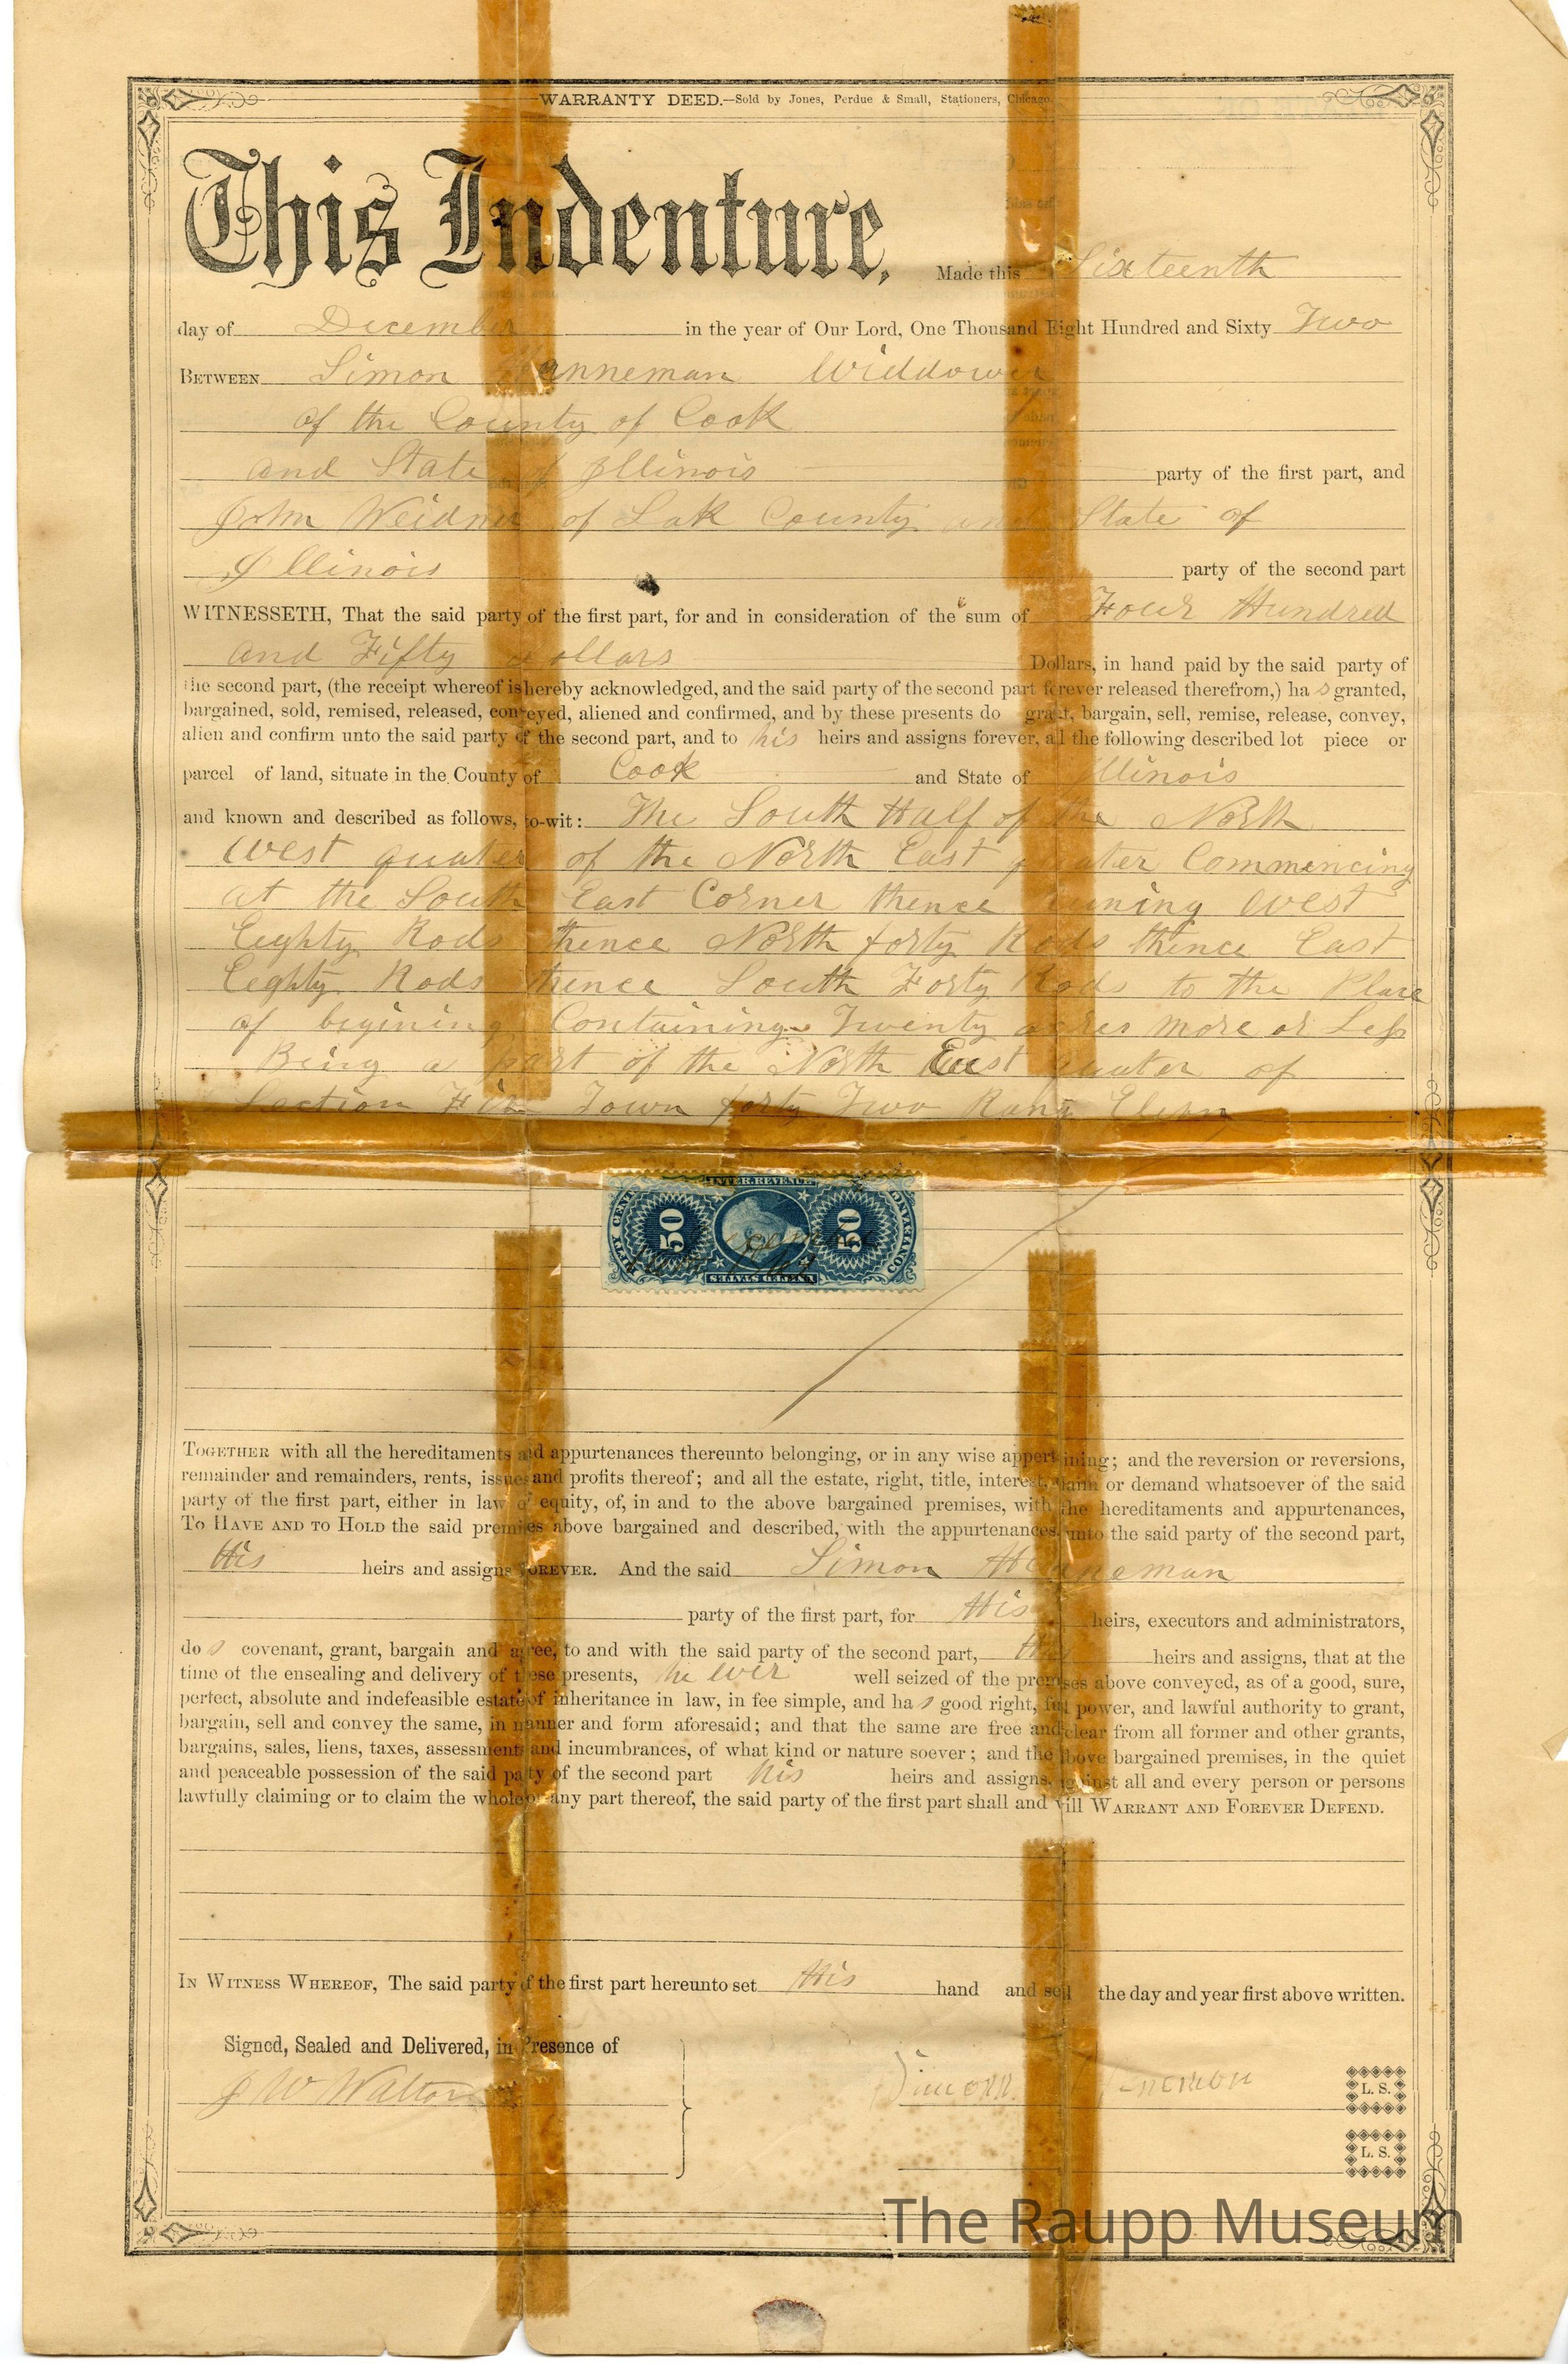 WARRANTY DEED.—Sold by Jones, Perdue & Small, Stationers, Chicago.
This Indenture, Made this Sixteenth
day of December in the year of Our Lord, One Thousand Eight Hundred and Sixty Two
BETWEEN Simon Henneman Widdower
of the County of Cook
and State of Illinois party of the first part, and
John Weidner of Lak County and State of
Illinois party of the second part
WITNESSETH, That the said party of the first part, for and in consideration of the sum of Four Hundred
and Fifty dollars Dollars, in hand paid by the said party of
the second part, (the receipt whereof is hereby acknowledged, and the said party of the second part forever released therefrom,) ha s granted,
bargained, sold, remised, released, conveyed, aliened and confirmed, and by these presents do grant, bargain, sell, remise, release, convey,
alien and confirm unto the said party of the second part, and to his heirs and assigns forever, all the following described lot piece or
parcel of land, situate in the County of Cook and State of Illinois
and known and described as follows, to-wit: The South Half of the North
West quater of the North East quater Commencing
at the South East Corner thence runing West
Eighty Rods thence North forty Rods thence East
Eeghty Rods thence South Forty Rods to the Place
of begining Containing Twenty acres more or Less
Being a part of the North East quater of
Section Town forty Two Rang
INTER. REVENUE
FIFTY CENTS 50 50 CONVEYANCE
UNITED STATES
TOGETHER with all the hereditaments and appurtenances thereunto belonging, or in any wise appertaining; and the reversion or reversions,
remainder and remainders, rents, issues and profits thereof; and all the estate, right, title, interest, claim or demand whatsoever of the said
party of the first part, either in law or equity, of, in and to the above bargained premises, with the hereditaments and appurtenances,
TO HAVE AND TO HOLD the said premises above bargained and described, with the appurtenances, unto the said party of the second part,
His heirs and assigns FOREVER. And the said Simon Henneman
party of the first part, for His heirs, executors and administrators,
do s covenant, grant, bargain and agree, to and with the said party of the second part, his heirs and assigns, that at the
time of the ensealing and delivery of these presents, he wer well seized of the premises above conveyed, as of a good, sure,
perfect, absolute and indefeasible estate of inheritance in law, in fee simple, and ha s good right, full power, and lawful authority to grant,
bargain, sell and convey the same, in manner and form aforesaid; and that the same are free and clear from all former and other grants,
bargains, sales, liens, taxes, assessments and incumbrances, of what kind or nature soever; and the above bargained premises, in the quiet
and peaceable possession of the said party of the second part his heirs and assigns, against all and every person or persons
lawfully claiming or to claim the whole or any part thereof, the said party of the first part shall and will WARRANT AND FOREVER DEFEND.
IN WITNESS WHEREOF, The said party of the first part hereunto set His hand and seal the day and year first above written.
Signed, Sealed and Delivered, in Presence of
J W Walton
L. S.
L. S.
The Raupp Museum